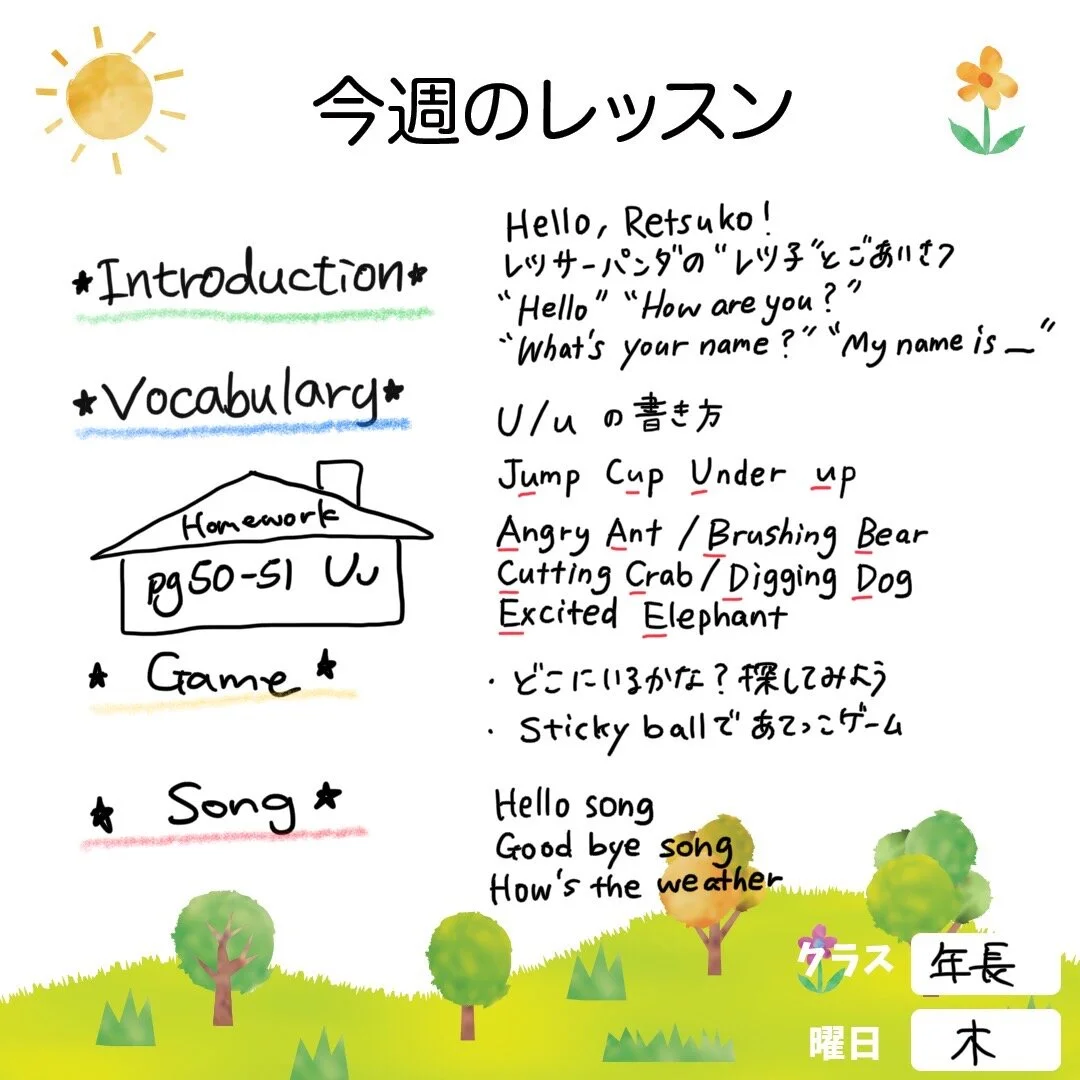 今週のレッスン
★Introduction★
Hello, Retsuko!
レッサーパンダの“レツ子”とごあいさつ
“Hello” “How are you?”
“What's your name?” “My name is _”
★Vocabulary★
U/u の書き方
Jump Cup Under up
Angry Ant / Brushing Bear
Cutting Crab / Digging Dog
Excited Elephant
Homework
pg50-51 Uu
★ Game ★
・どこにいるかな?探してみよう
・Sticky ballであてっこゲーム
★ Song ★
Hello song
Good bye song
How's the weather
クラス 年長
曜日 木